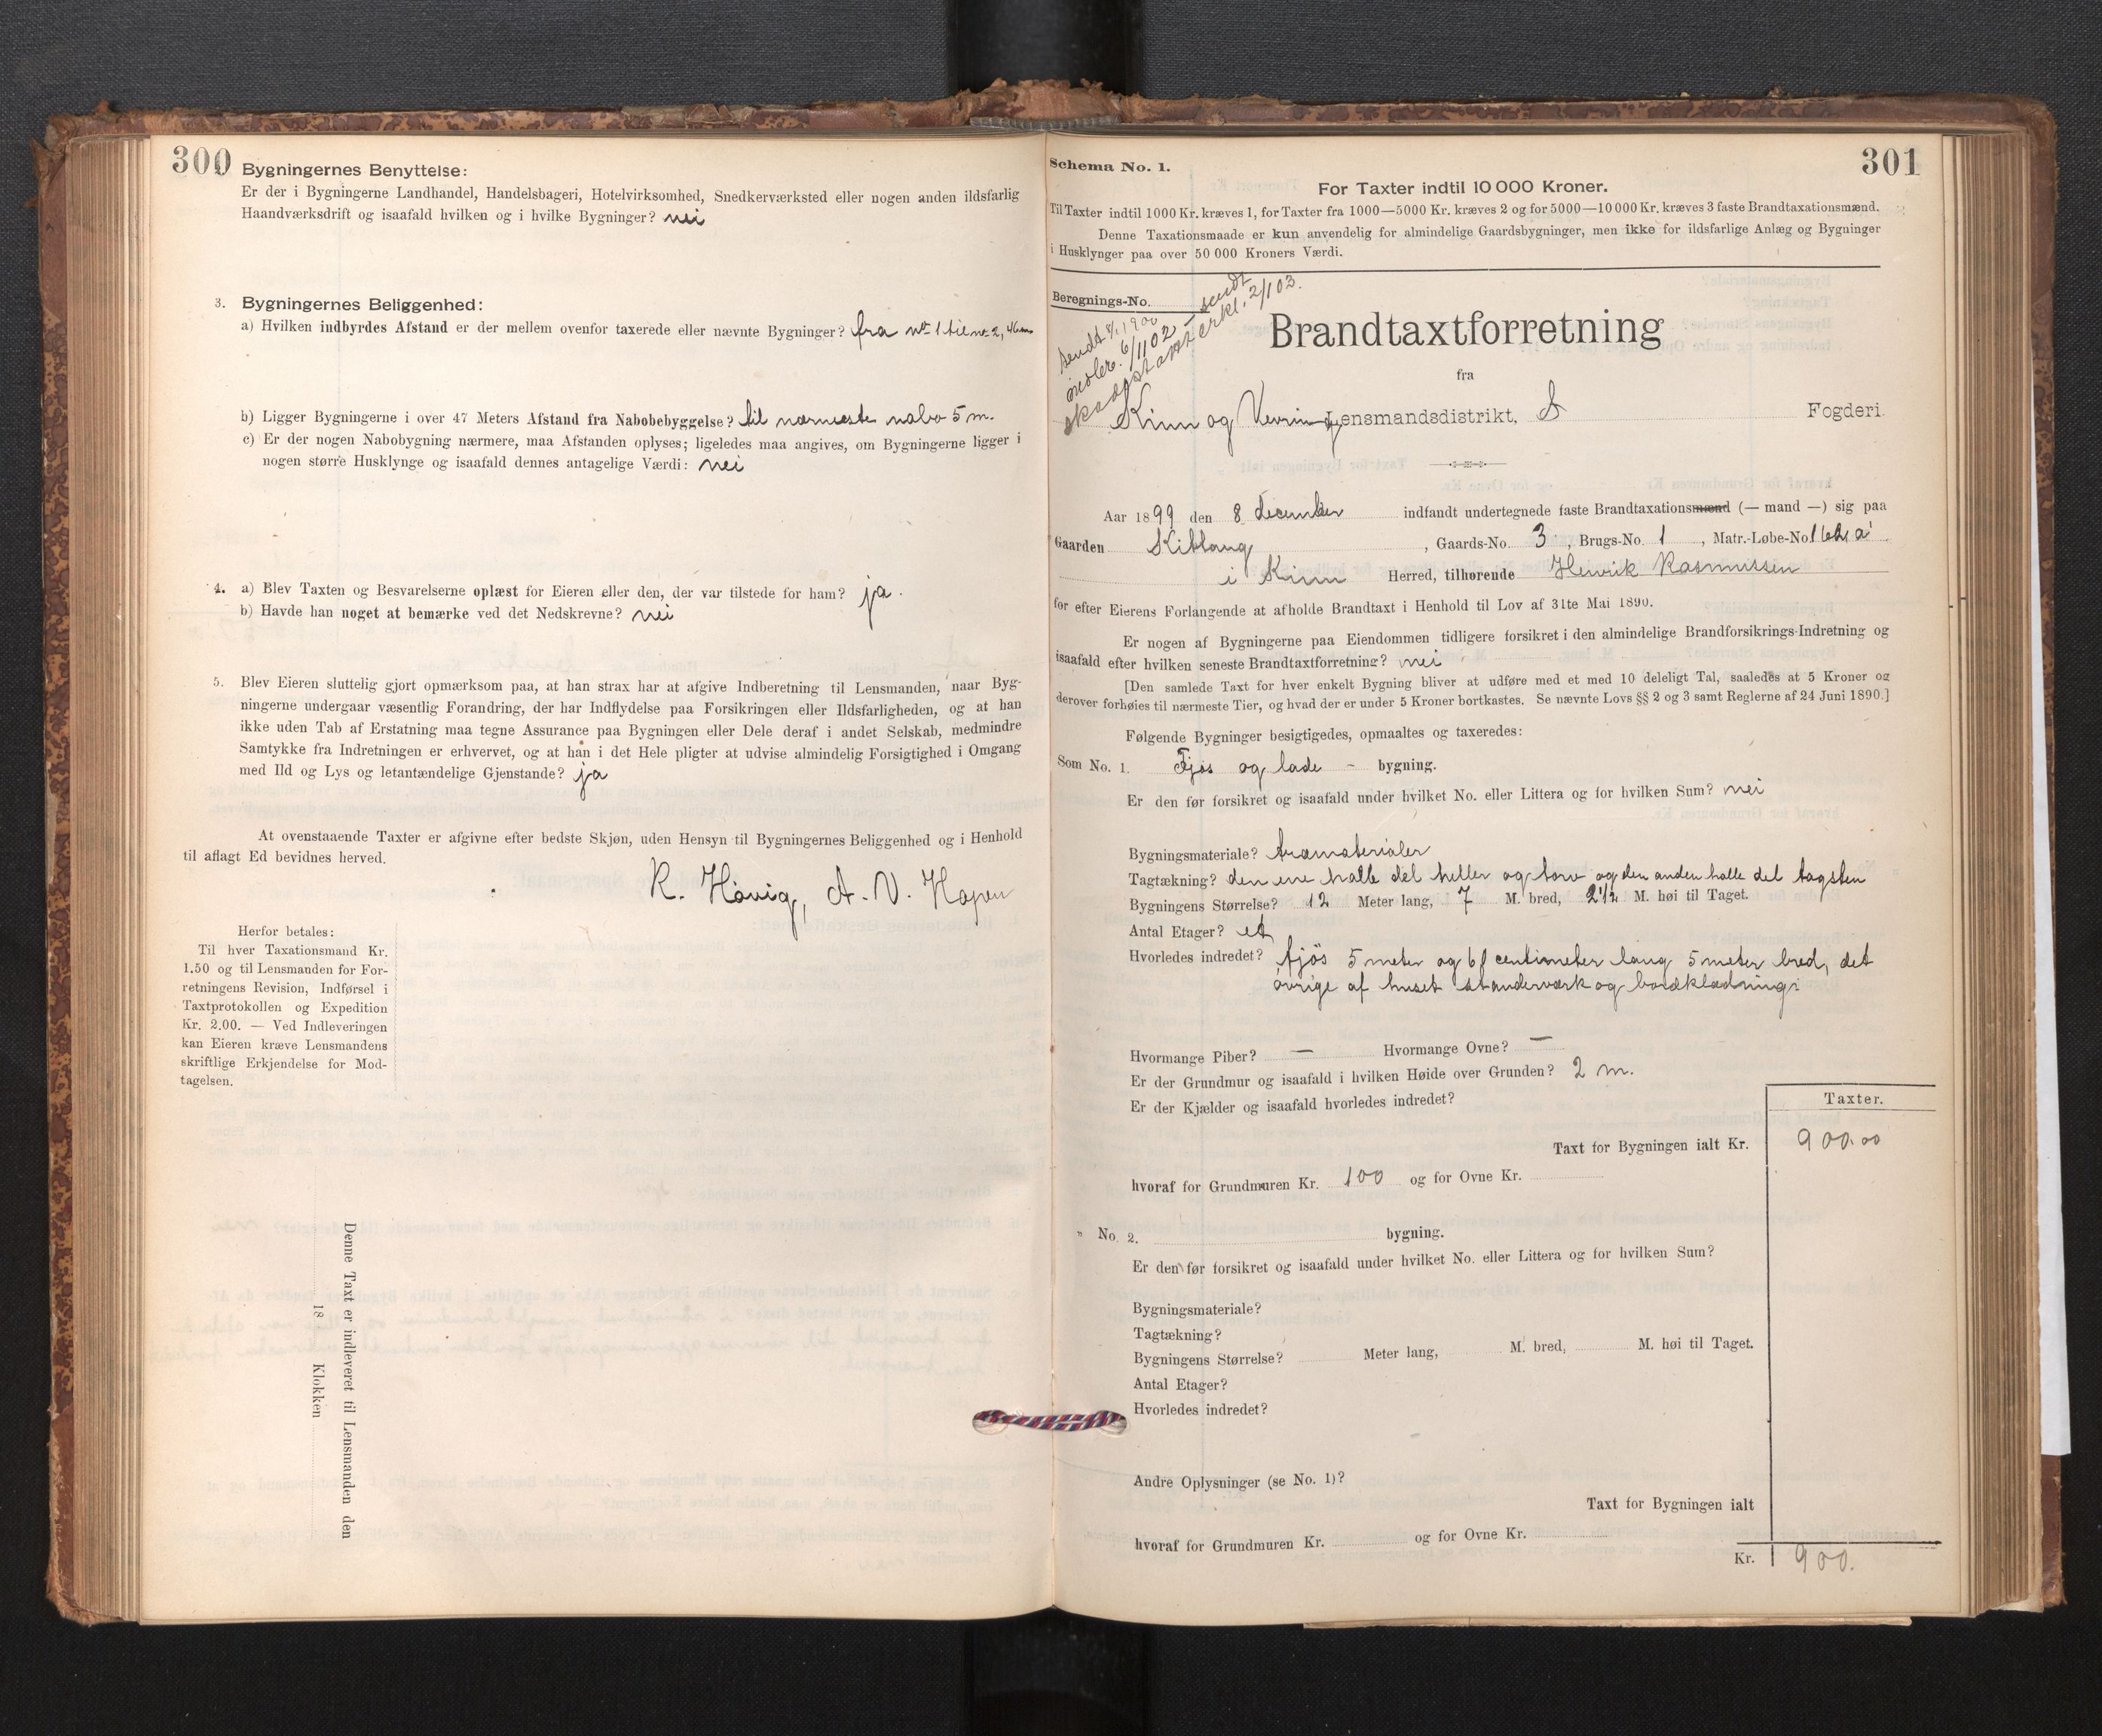 300
Bygningernes Benyttelse:
Er der i Bygningerne Landhandel, Handelsbageri, Hotelvirksomhed, Snedkerværksted eller nogen anden ildsfarlig
Haandværksdrift og isaafald hvilken og i hvilke Bygninger? nei
3. Bygningernes Beliggenhed:
a) Hvilken indbyrdes Afstand er der mellem ovenfor taxerede eller nævnte Bygninger? fra no 1 til no 2, 46 m
b) Ligger Bygningerne i over 47 Meters Afstand fra Nabobebyggelse? til nærmeste nabo 5 m.
c) Er der nogen Nabobygning nærmere, maa Afstanden oplyses; ligeledes maa angives, om Bygningerne ligger i
nogen større Husklynge og isaafald dennes antagelige Værdi: nei
4. a) Blev Taxten og Besvarelserne oplæst for Eieren eller den, der var tilstede for ham? ja.
b) Havde han noget at bemærke ved det Nedskrevne? nei
5. Blev Eieren sluttelig gjort opmærksom paa, at han strax har at afgive Indberetning til Lensmanden, naar Byg-
ningerne undergaar væsentlig Forandring, der har Indflydelse paa Forsikringen eller Ildsfarligheden, og at han
ikke uden Tab af Erstatning maa tegne Assurance paa Bygningen eller Dele deraf i andet Selskab, medmindre
Samtykke fra Indretningen er erhvervet, og at han i det Hele pligter at udvise almindelig Forsigtighed i Omgang
med Ild og Lys og letantændelige Gjenstande? ja
At ovenstaaende Taxter er afgivne efter bedste Skjøn, uden Hensyn til Bygningernes Beliggenhed og i Henhold
til aflagt Ed bevidnes herved.
K. Hovig, A. V. Hopen
Herfor betales:
Til hver Taxationsmand Kr.
1.50 og til Lensmanden for For-
retningens Revision, Indførsel i
Taxtprotokollen og Expedition
Kr. 2.00. — Ved Indleveringen
kan Eieren kræve Lensmandens
skriftlige Erkjendelse for Mod-
tagelsen.
Denne Taxt er indleveret til Lensmanden den
18 Klokken
Schema No. 1.
301
For Taxter indtil 10 000 Kroner.
Til Taxter indtil 1000 Kr. kræves 1, for Taxter fra 1000—5000 Kr. kræves 2 og for 5000—10 000 Kr. kræves 3 faste Brandtaxationsmænd.
Denne Taxationsmaade er kun anvendelig for almindelige Gaardsbygninger, men ikke for ildsfarlige Anlæg og Bygninger
i Husklynger paa over 50 000 Kroners Værdi.
Beregnings-No.
sendt 1900
6/11 02 – sendt
2/1 03.
Brandtaxtforretning
fra
Kinn og Vevring Lensmandsdistrikt, S Fogderi.
Aar 1899 den 8 december indfandt undertegnede faste Brandtaxationsmænd (— mand —) sig paa
Gaarden , Gaards-No. 3 , Brugs-No. 1 , Matr.-Løbe-No.
i Kinn Herred, tilhørende Henrik Rasmussen
for efter Eierens Forlangende at afholde Brandtaxt i Henhold til Lov af 31te Mai 1890.
Er nogen af Bygningerne paa Eiendommen tidligere forsikret i den almindelige Brandforsikrings-Indretning og
isaafald efter hvilken seneste Brandtaxtforretning? nei
[Den samlede Taxt for hver enkelt Bygning bliver at udføre med et med 10 deleligt Tal, saaledes at 5 Kroner og
derover forhøies til nærmeste Tier, og hvad der er under 5 Kroner bortkastes. Se nævnte Lovs §§ 2 og 3 samt Reglerne af 24 Juni 1890.]
Følgende Bygninger besigtigedes, opmaaltes og taxeredes:
Som No. 1. Fjøs og lade – bygning.
Er den før forsikret og isaafald under hvilket No. eller Littera og for hvilken Sum? nei
Bygningsmateriale? træmaterialer
Tagtækning? den ene halle del heller og torv og den anden halle del tagsten
Bygningens Størrelse? 12 Meter lang, 7 M. bred, 2 1/2 M. høi til Taget.
Antal Etager? et
Hvorledes indredet? fjøs 5 meter og centimeter lang 5 meter bred, det
øvrige af huset standerværk og bordklædning.
Hvormange Piber? — Hvormange Ovne? —
Er der Grundmur og isaafald i hvilken Høide over Grunden? 2 m.
Er der Kjælder og isaafald hvorledes indredet?
Taxter.
Taxt for Bygningen ialt Kr. 900.00
hvoraf for Grundmuren Kr. 100 og for Ovne Kr.
" No. 2. bygning.
Er den før forsikret og isaafald under hvilket No. eller Littera og for hvilken Sum?
Bygningsmateriale?
Tagtækning?
Bygningens Størrelse? Meter lang, M. bred, M. høi til Taget.
Antal Etager?
Hvorledes indredet?
Andre Oplysninger (se No. 1)?
Taxt for Bygningen ialt
hvoraf for Grundmuren Kr. og for Ovne Kr.
Kr. 900.